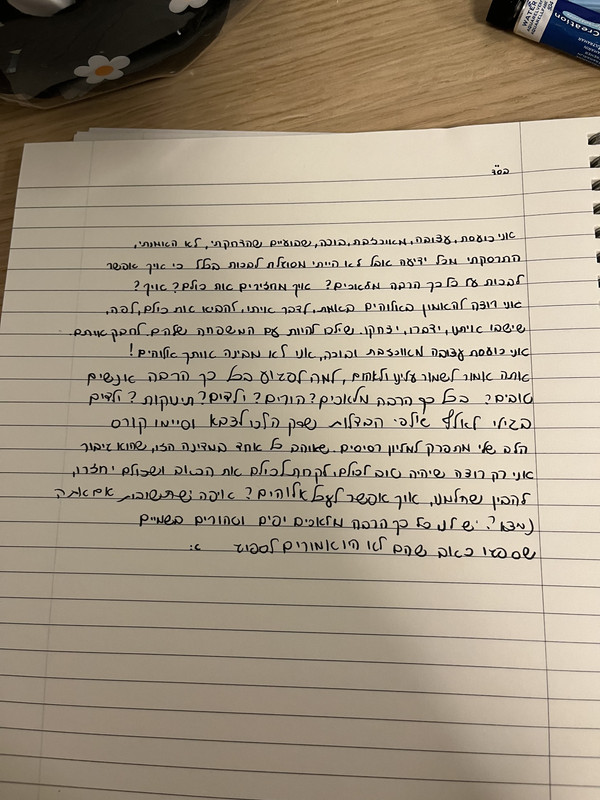 בס"ד
אני כועסת, עצובה, מאוכזבת, בוכה, שבועיים שהדחקתי, לא האמנתי,
התרסקתי מכל ידיעה אבל לא הייתי מסוגלת לבכות בכלל כי איך אפשר
לבכות על כל כך הרבה מלאכים? איך מחזירים את כולם? איך?
אני רוצה להאמין באלוהים באמת, לדבר איתו, להביא את כולם, לפה,
שישבו איתנו, ידברו, יצחקו. שילכו להיות עם המשפחה שלהם. לחבק אותם.
אני כועסת עצובה מאוכזבת ובוכה, אני לא מבינה אותך אלוהים!
אתה אמור לשמור עלינו ולאהוב, למה לפגוע בכל כך הרבה אנשים
טובים? בכל כך הרבה מלאכים? הורים? ילדים? תינוקות? ילדים
בגילי לאלף אילפי הבדלות שרק הלכו לצבא וסיימו קורס
הלב שלי מתפרק למליון רסיסים. שאוהב כל אחד במדינה הזו, שהוא גיבור
אני רק רוצה שיהיה טוב לכולם, לקחת לכולם את הכאב ושכולם יחזרו,
להבין שחלמנו, איך אפשר לעכל אלוהים? איפה התשובות אם אתה
נמצא? יש לנו כל כך הרבה מלאכים יפים וטהורים בשמיים
שספגו כאב שהם לא היו אמורים לספוג :(